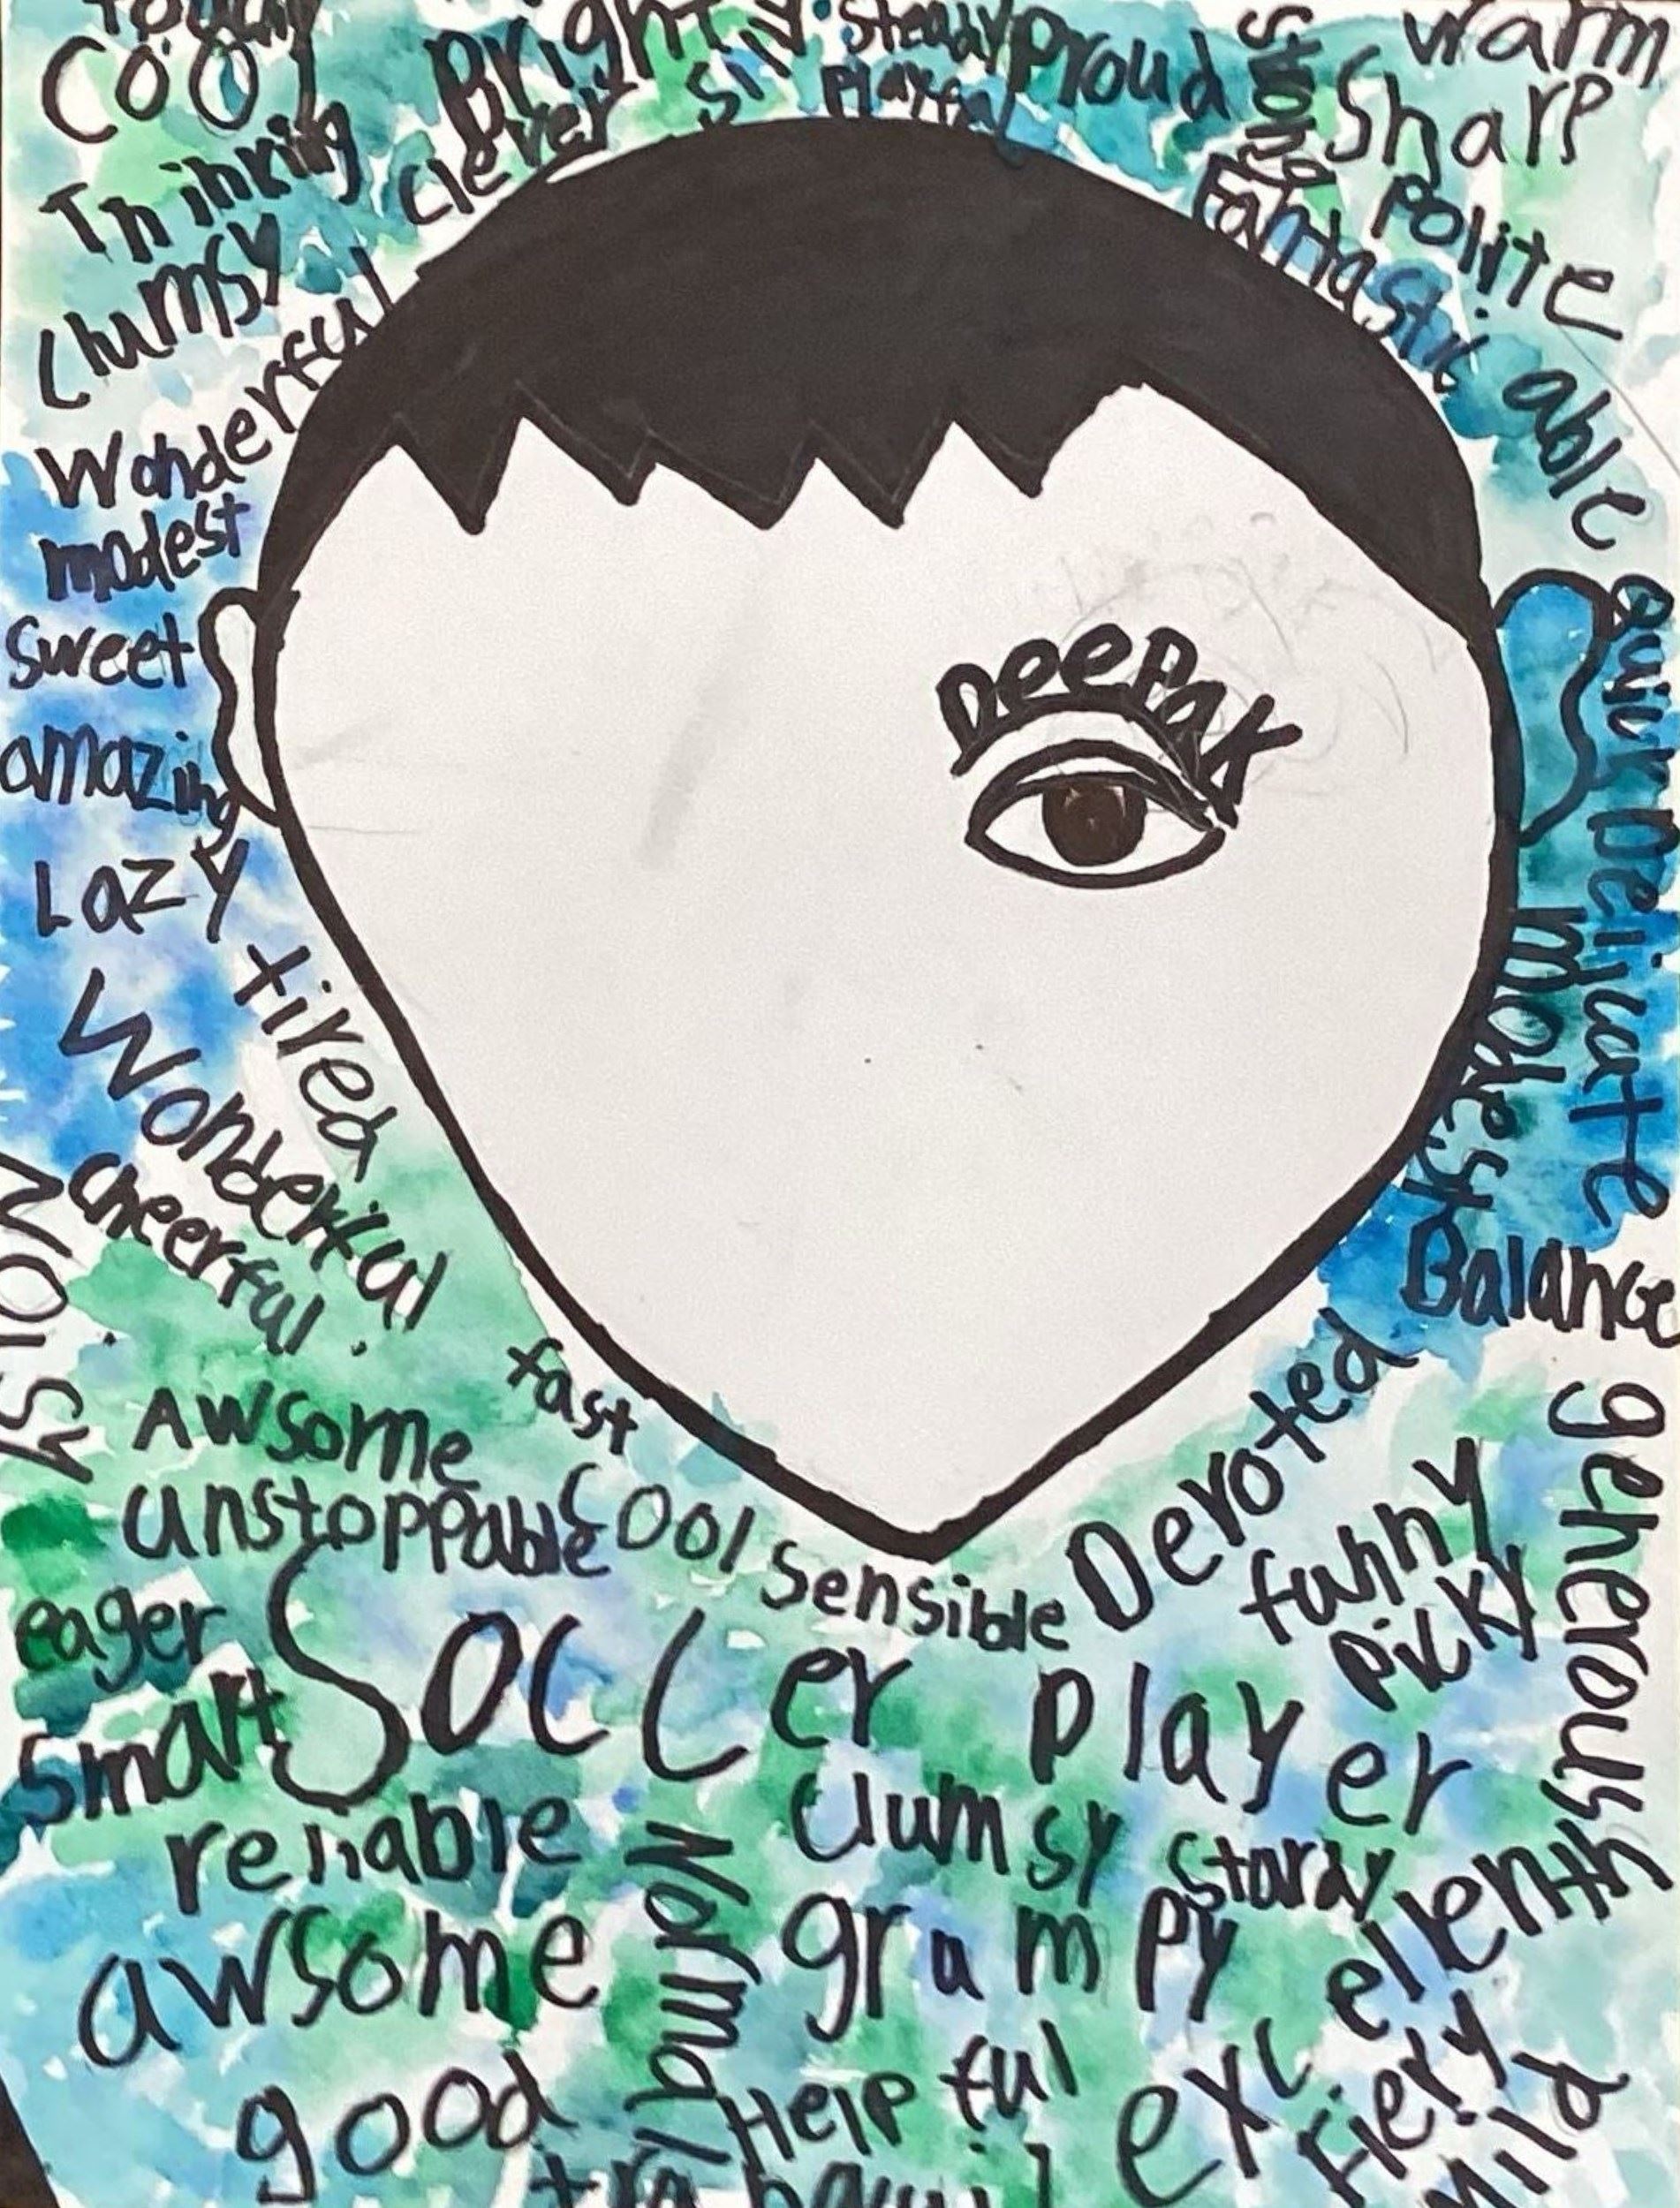 Cool
Brighty
Steady
Proud
Strong
Warm
Sharp
Thinking
Clever
Playful
Fantastic
Polite
Clumsy
Wonderful
able
modest
Sweet
DeePaK
amazing
Lazy
tired
Delicate
modest
Wonderful
cheerful.
NOISY
Balance
fast
Awsome
Devoted
generous
unstoppable
Cool
Sensible
funny
picky
eager
Soccer player
Smart
reliable
Clumsy
Stordy
Normal
grumpy
awsome
exellent
good
Helpful
Fiery
Mild